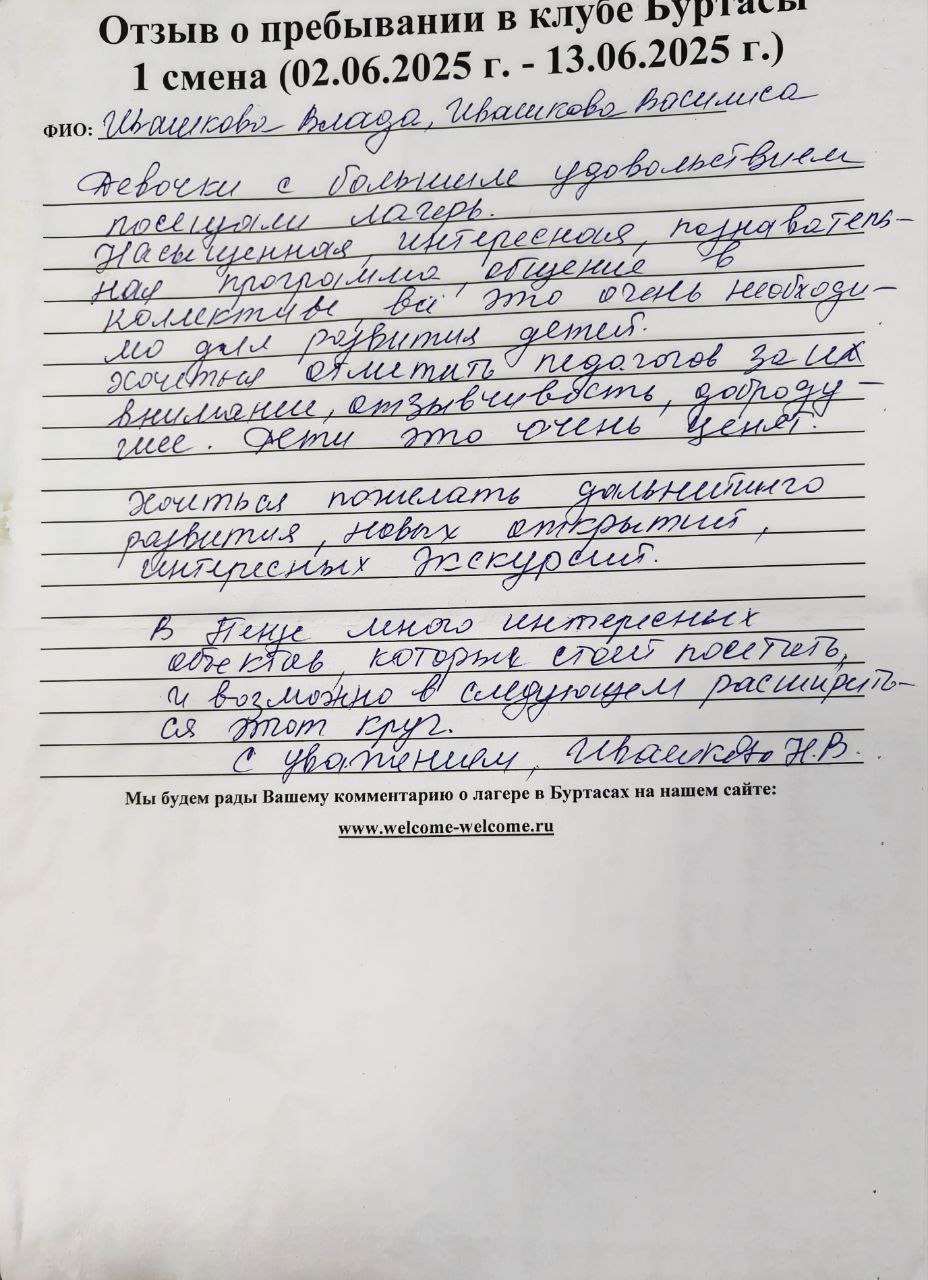 Отзыв о пребывании в клубе Буртасы
1 смена (02.06.2025 г. - 13.06.2025 г.)
ФИО: Ивашкова Влада, Ивашкова Василиса
Девочки с большим удовольствием
посещали лагерь.
Насыщенная, интересная, познаватель-
ная программа, общение в
коллективе, всё это очень необходи-
мо для развития детей.
Хочеться отметить педагогов за их
внимание, отзывчивость, доброду-
шее. Дети это очень ценят.
Хочеться пожелать дальнейшего
развития, новых открытий,
интересных экскурсий.
В Пензе много интересных
объектов, которые стоит посетить,
и возможно в следующем расширить-
ся этот круг.
С уважением, Ивашкова Н.В.
Мы будем рады Вашему комментарию о лагере в Буртасах на нашем сайте:
www.welcome-welcome.ru